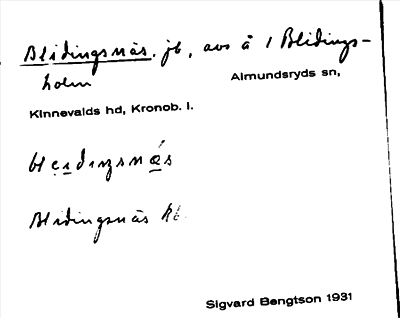 Blidingsnäs, jb, avs å 1 Blidings-
holm
Almundsryds sn,
Kinnevalds hd, Kronob. l.
Blidingsnäs
Sigvard Bengtson 1931